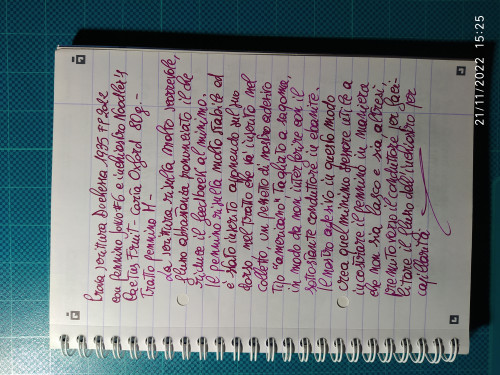 Prova scrittura Duchess 1935 PP Sole
con pennino JoWo #6 e inchiostro Noodler's
Cactus Fruit - carta Oxford 80g. -
Tratto pennino M -
La scrittura risulta molto scorrevole,
flusso abbastanza pronunciato il che
riduce il feedback al minimo.
Il pennino risulta molto stabile ed
è stato inserito apponendo sul suo
dorso nel tratto che va inserito nel
colletto, un pezzetto di nastro adesivo
tipo "americano" tagliato a sagoma,
in modo da non interferire con il
sottostante conduttore in ebanite.
Il nastro adesivo in questo modo
crea quel minimo spessore atto a
incastrare il pennino in maniera
che non sia lasco e sia altresì
premuto verso il conduttore per faci-
litare il flusso dell'inchiostro per
capillarità
21/11/2022 15:25